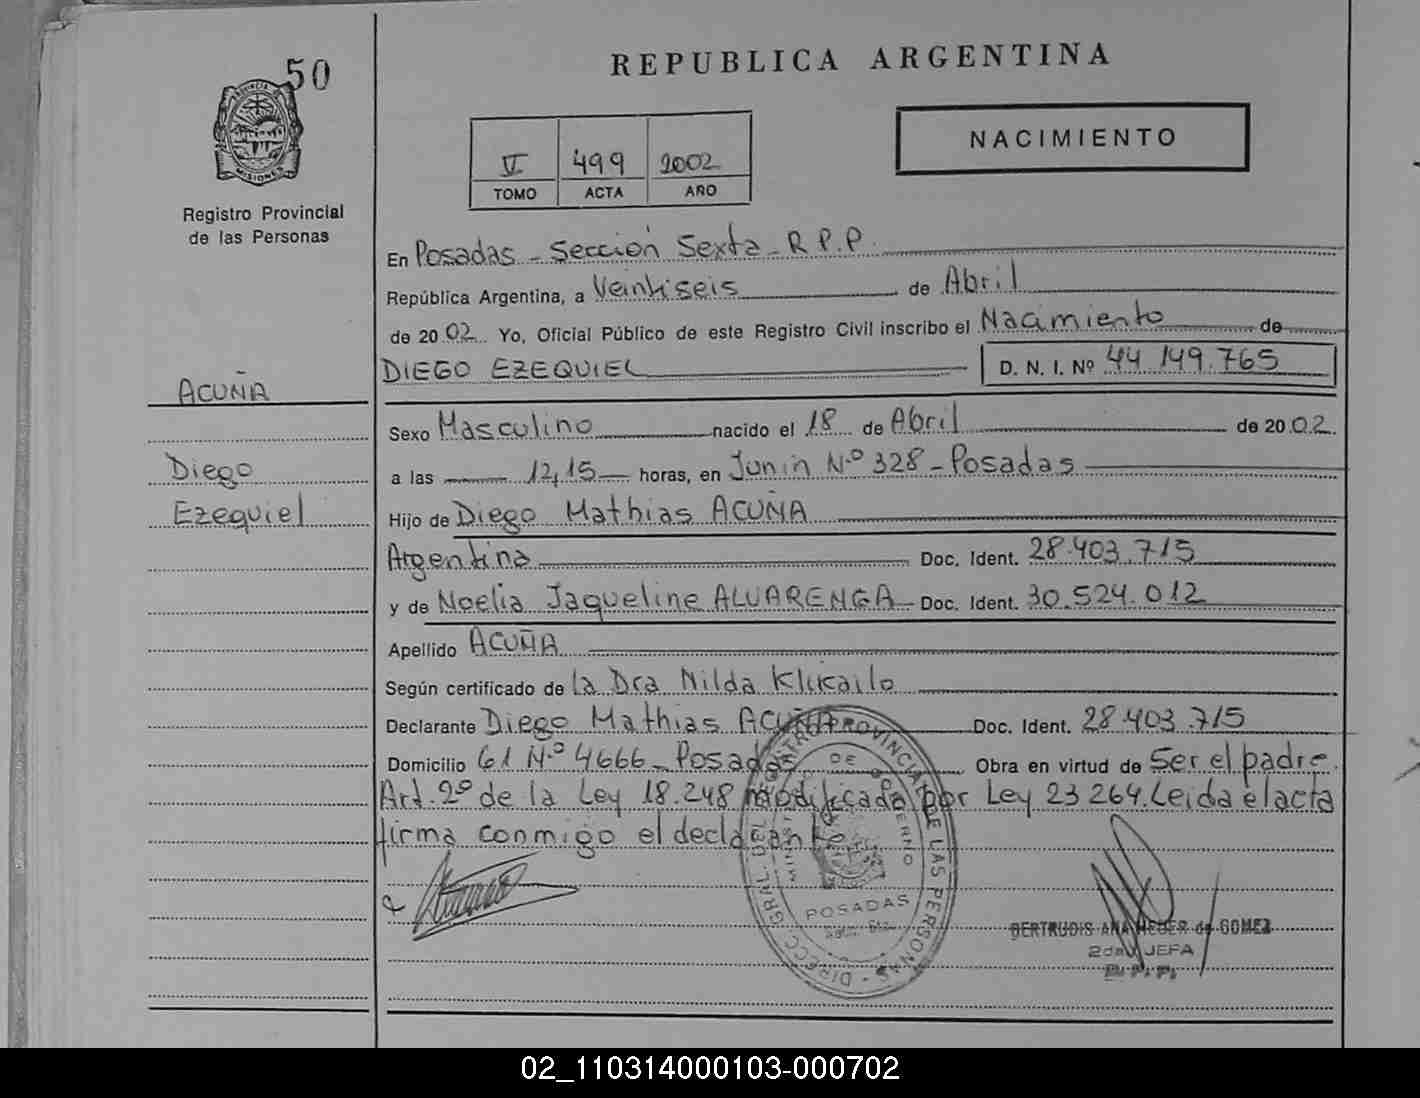 50
PROVINCIA DE
MISIONES
Registro Provincial
de las Personas
ACUÑA
Diego
Ezequiel
REPUBLICA ARGENTINA
V 499 2002
TOMO ACTA AÑO
NACIMIENTO
En Posadas - Sección Sexta - R.P.P.
República Argentina, a Veintiseis de Abril
de 2002 Yo, Oficial Público de este Registro Civil inscribo el Nacimiento de
DIEGO EZEQUIEL D. N. I. Nº 44.149.765
Sexo Masculino nacido el 18 de Abril de 2002
a las 12,15 horas, en Junin Nº 328 - Posadas
Hijo de Diego Mathias ACUÑA
Argentina Doc. Ident. 28.403.715
y de Noelia Jaqueline ALVARENGA Doc. Ident. 30.524.012
Apellido ACUÑA
Según certificado de la Dra Nilda Klikailo
Declarante Diego Mathias ACUÑA Doc. Ident. 28.403.715
Domicilio 61 Nº 4666 - Posadas Obra en virtud de Ser el padre.
Art. 2º de la Ley 18.248 modificada por Ley 23264. Leida el acta
firma conmigo el declarante
DIRECC. GRAL. DEL REGISTRO PROVINCIAL DE LAS PERSONAS
MINIST. DE GOBIERNO
POSADAS
GERTRUDIS ANA HEBER de GOMEZ
2da. JEFA
R. P. P.
02_110314000103-000702